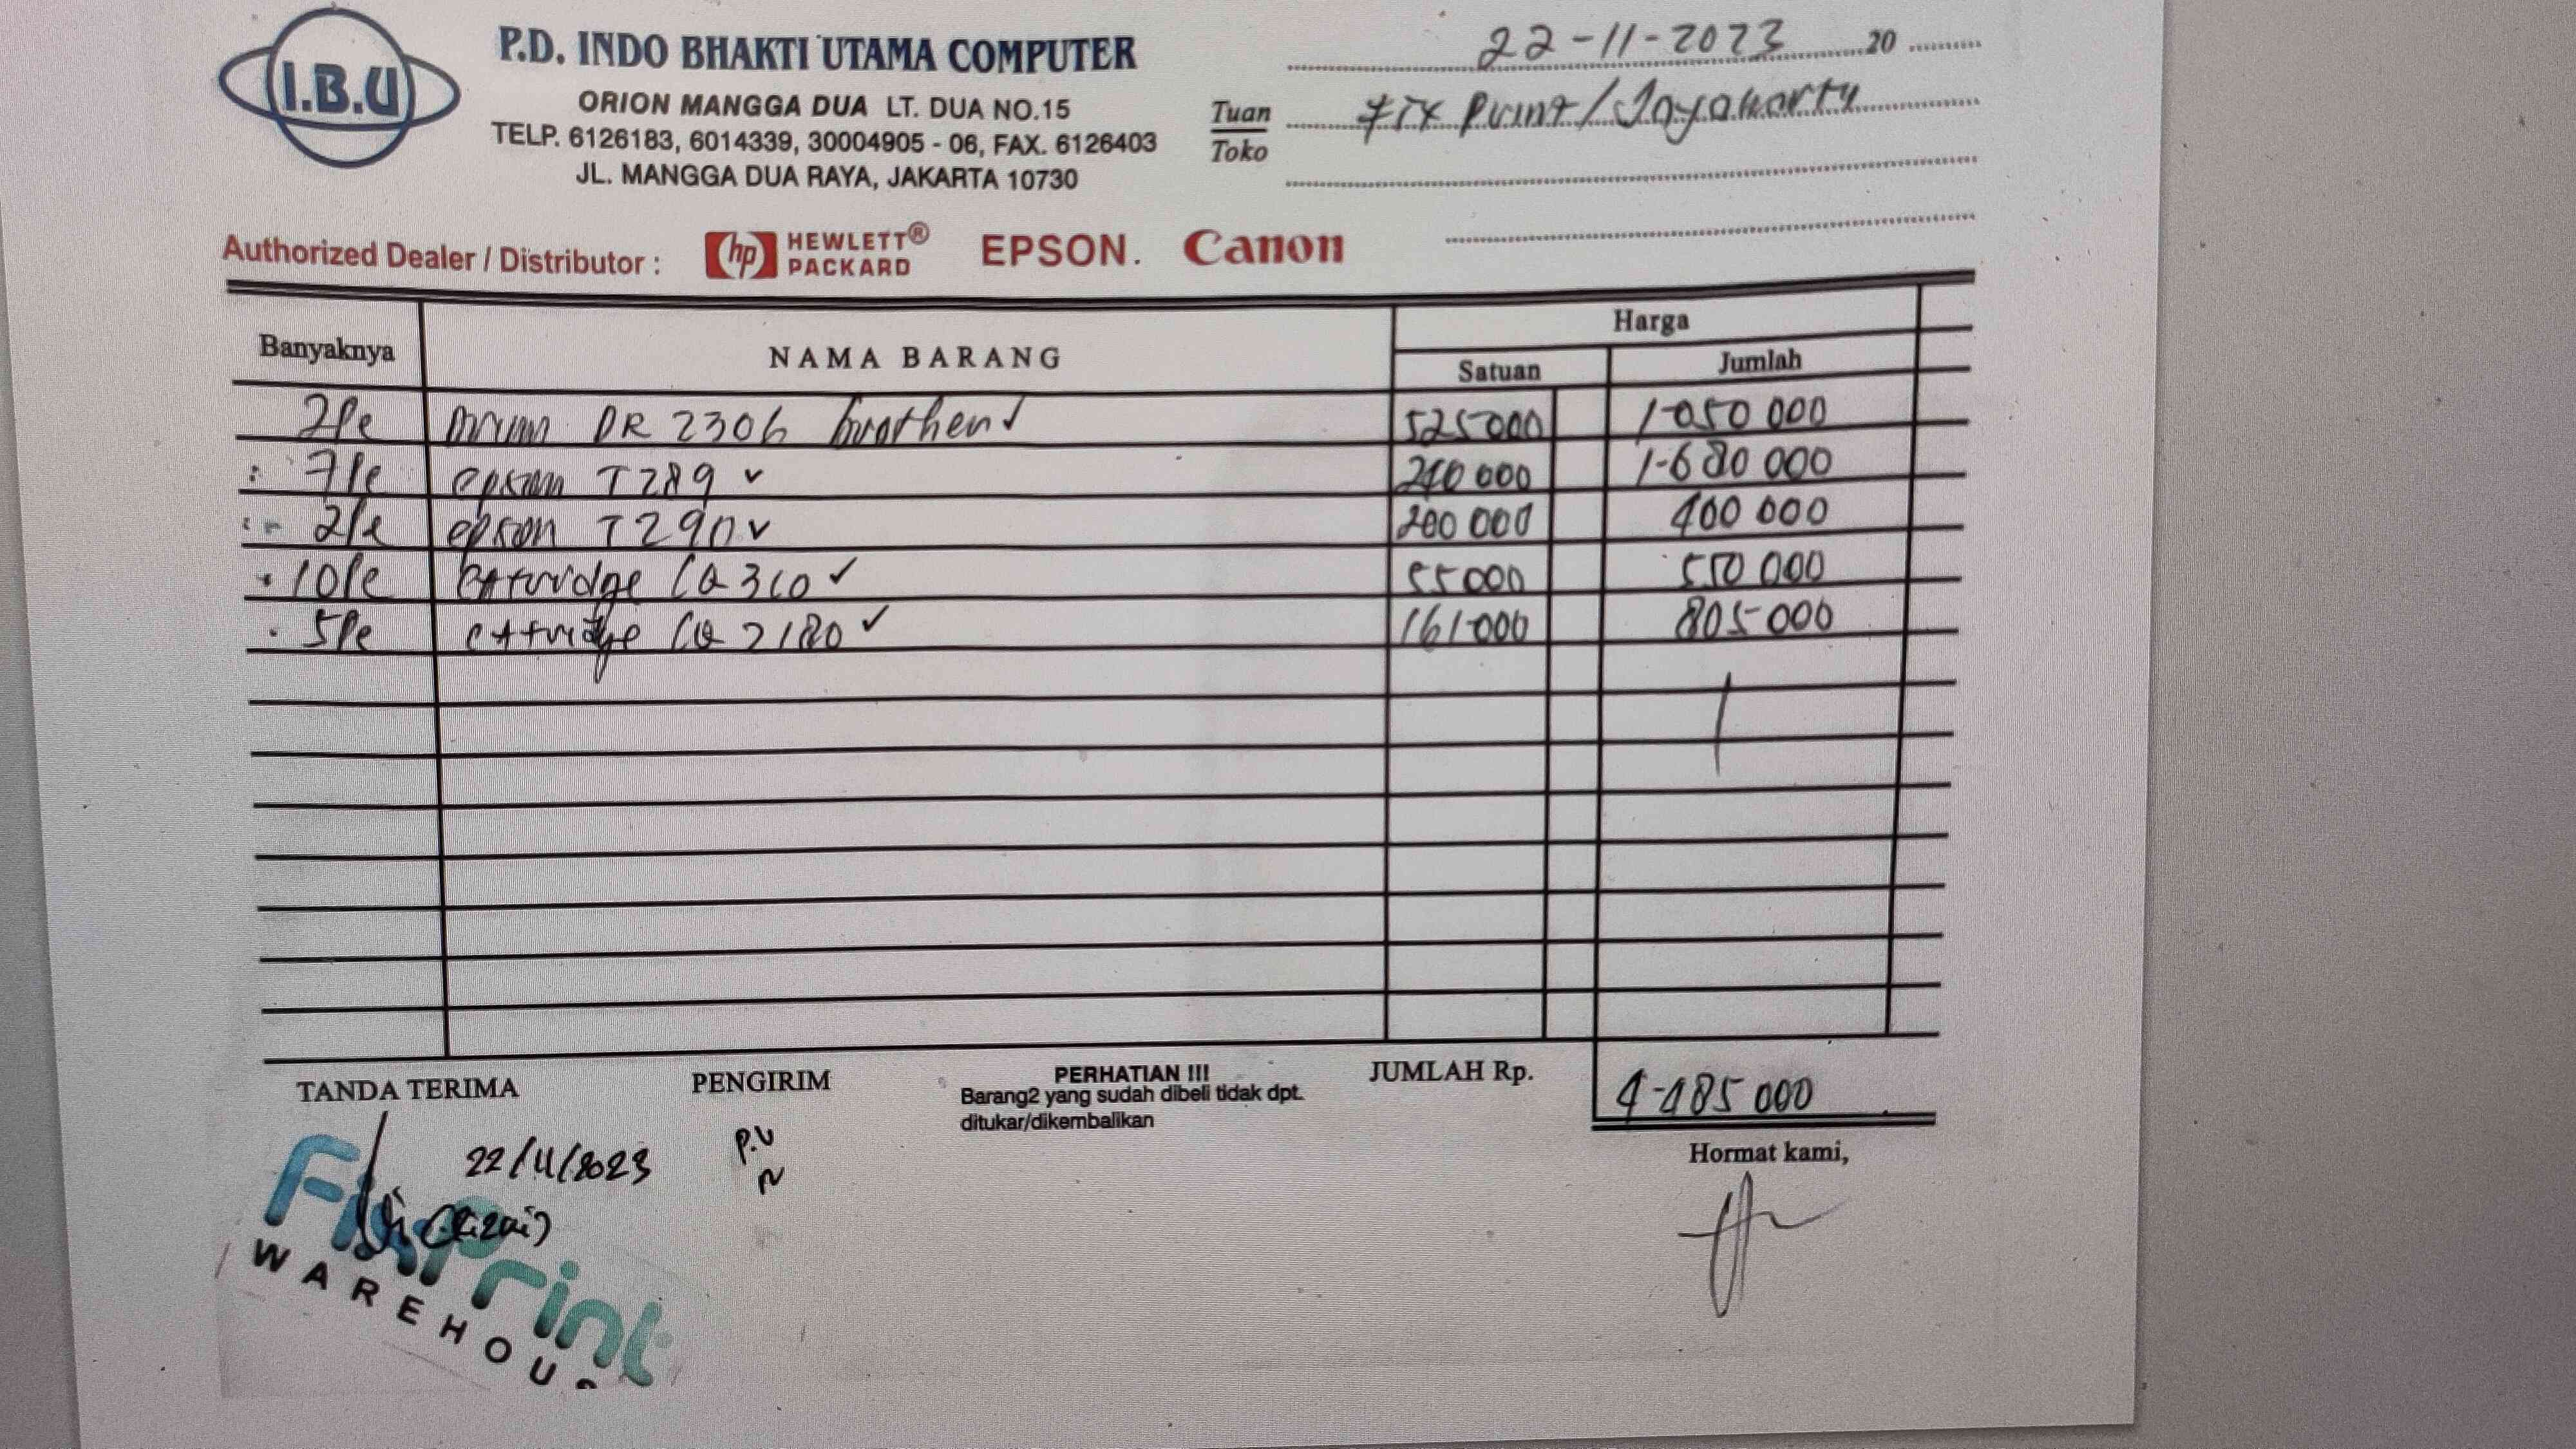 I.B.U
P.D. INDO BHAKTI UTAMA COMPUTER
ORION MANGGA DUA LT. DUA NO.15
TELP. 6126183, 6014339, 30004905 - 06, FAX. 6126403
JL. MANGGA DUA RAYA, JAKARTA 10730
22-11-2023 20
Tuan Fix Print/Jayakarta
Toko
Authorized Dealer / Distributor : hp HEWLETT® PACKARD EPSON. Canon
Banyaknya NAMA BARANG Harga
Satuan Jumlah
2Pc Drum DR 2306 brother ✓ 525000 1-050 000
7Pc epson T289 ✓ 240 000 1-680 000
2Pc epson T290 ✓ 200 000 400 000
10Pc Cattridge LQ 310 ✓ 55000 550 000
5Pc Cattridge LQ 2180 ✓ 161000 805 000
TANDA TERIMA PENGIRIM PERHATIAN !!! JUMLAH Rp. 4-485 000
Barang2 yang sudah dibeli tidak dpt.
ditukar/dikembalikan
22/11/2023 P.U
Hormat kami,
Print
WAREHOU